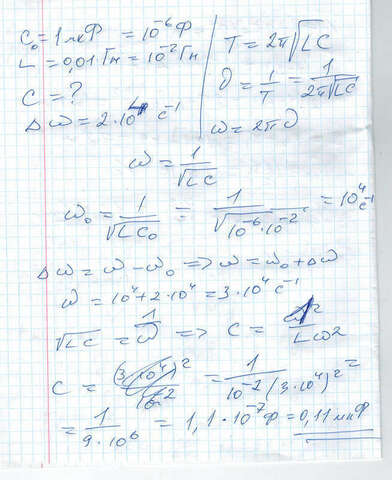 C₀ = 1 мкФ = 10⁻⁶ Ф
L = 0,01 Гн = 10⁻² Гн
C = ?
Δω = 2·10⁴ с⁻¹
T = 2π√LC
υ = 1/T = 1/(2π√LC)
ω = 2πυ
ω = 1/√LC
ω₀ = 1/√LC₀ = 1/√10⁻⁶·10⁻² = 10⁴ с⁻¹
Δω = ω - ω₀ => ω = ω₀ + Δω
ω = 10⁴ + 2·10⁴ = 3·10⁴ с⁻¹
√LC = 1/ω => C = 1/Lω²
C = = 1/10⁻²(3·10⁴)² =
= 1/9·10⁶ = 1,1·10⁻⁷ Ф = 0,11 мкФ